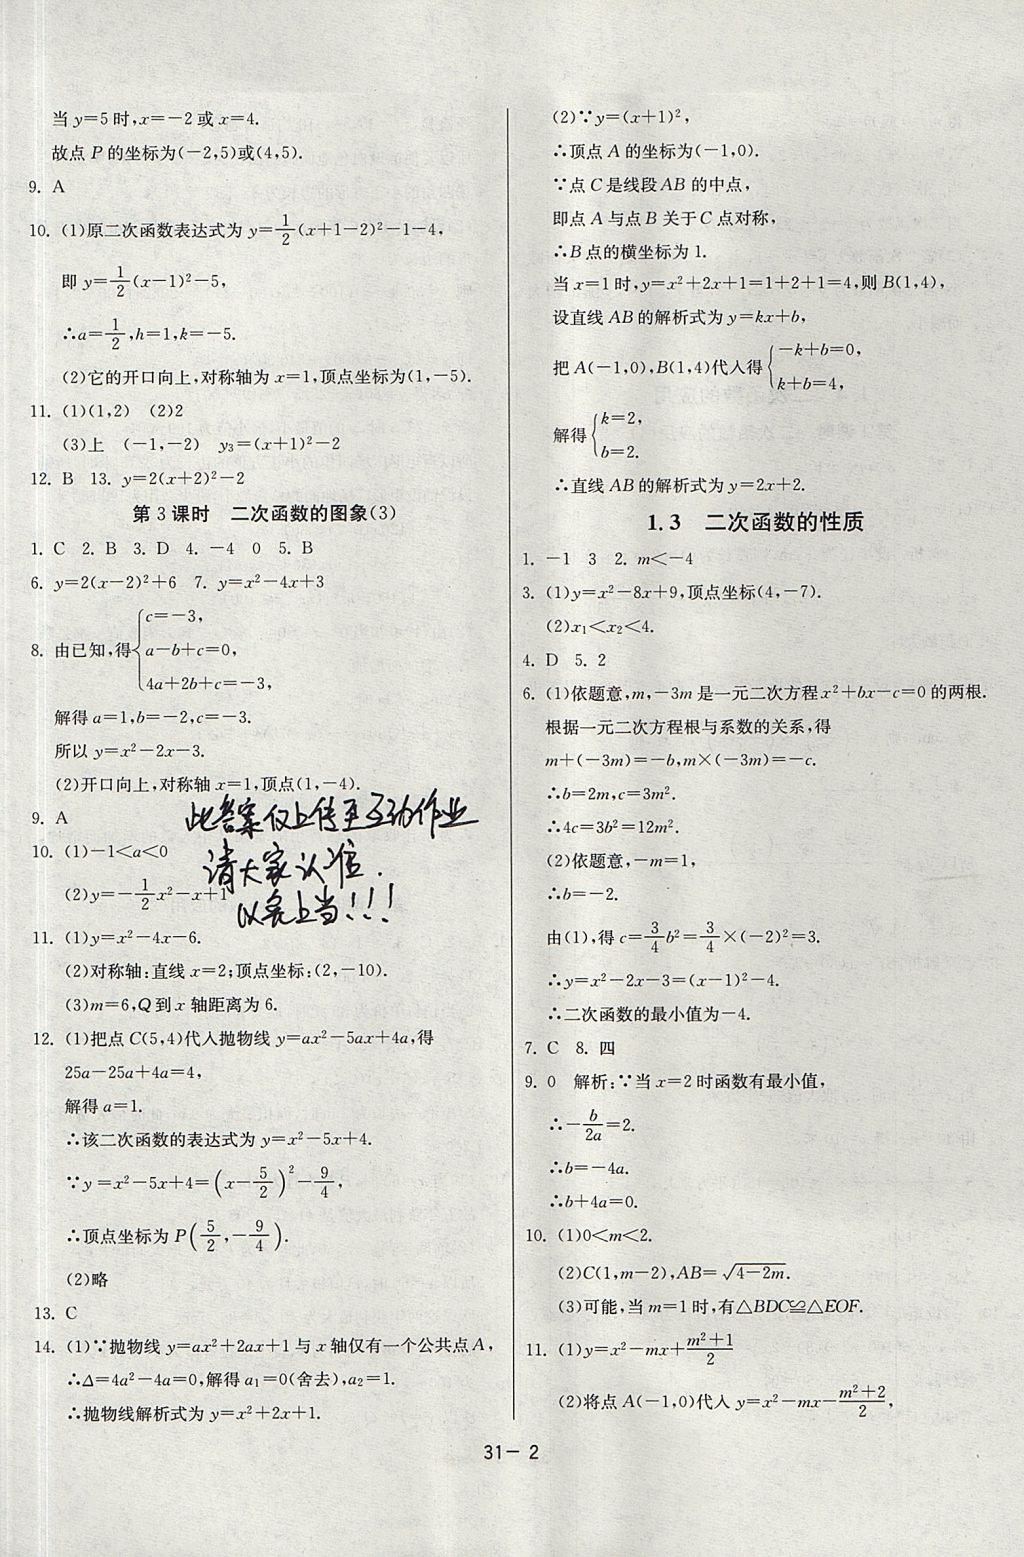 当y=5时,x=-2或x=4.
故点P的坐标为(-2,5)或(4,5).
9. A
10. (1)原二次函数表达式为y=\frac{1}{2}(x+1-2)²-1-4,
即y=\frac{1}{2}(x-1)²-5,
∴a=\frac{1}{2},h=1,k=-5.
(2)它的开口向上,对称轴为x=1,顶点坐标为(1,-5).
11. (1)(1,2) (2)2
(3)上 (-1,-2) y₃=(x+1)²-2
12. B 13. y=2(x+2)²-2
第3课时 二次函数的图象(3)
1. C 2. B 3. D 4. -4 0 5. B
6. y=2(x-2)²+6 7. y=x²-4x+3
8. 由已知,得{c=-3,
a-b+c=0,
4a+2b+c=-3,
解得a=1,b=-2,c=-3.
所以y=x²-2x-3.
(2)开口向上,对称轴x=1,顶点(1,-4).
9. A
此答案仅上传至互动作业
10. (1)-1<a<0
请大家认准.
(2)y=-\frac{1}{2}x²-x+1
以免上当!!!
11. (1)y=x²-4x-6.
(2)对称轴:直线x=2;顶点坐标:(2,-10).
(3)m=6,Q到x轴距离为6.
12. (1)把点C(5,4)代入抛物线y=ax²-5ax+4a,得
25a-25a+4a=4,
解得a=1.
∴该二次函数的表达式为y=x²-5x+4.
∵y=x²-5x+4=(x-\frac{5}{2})²-\frac{9}{4},
∴顶点坐标为P(\frac{5}{2},-\frac{9}{4}).
(2)略
13. C
14. (1)∵抛物线y=ax²+2ax+1与x轴仅有一个公共点A,
∴Δ=4a²-4a=0,解得a₁=0(舍去),a₂=1.
∴抛物线解析式为y=x²+2x+1.
(2)∵y=(x+1)²,
∴顶点A的坐标为(-1,0).
∵点C是线段AB的中点,
即点A与点B关于C点对称,
∴B点的横坐标为1.
当x=1时,y=x²+2x+1=1+2+1=4,则B(1,4),
设直线AB的解析式为y=kx+b,
把A(-1,0),B(1,4)代入得{-k+b=0,
k+b=4,
解得{k=2,
b=2.
∴直线AB的解析式为y=2x+2.
1.3 二次函数的性质
1. -1 3 2. m<-4
3. (1)y=x²-8x+9,顶点坐标(4,-7).
(2)x₁<x₂<4.
4. D 5. 2
6. (1)依题意,m,-3m是一元二次方程x²+bx-c=0的两根.
根据一元二次方程根与系数的关系,得
m+(-3m)=-b,m×(-3m)=-c.
∴b=2m,c=3m².
∴4c=3b²=12m².
(2)依题意,-m=1,
∴b=-2.
由(1),得c=\frac{3}{4}b²=\frac{3}{4}×(-2)²=3.
∴y=x²-2x-3=(x-1)²-4.
∴二次函数的最小值为-4.
7. C 8. 四
9. 0 解析:∵当x=2时函数有最小值,
∴-\frac{b}{2a}=2.
∴b=-4a.
∴b+4a=0.
10. (1)0<m<2.
(2)C(1,m-2),AB=\sqrt{4-2m}.
(3)可能,当m=1时,有△BDC≌△EOF.
11. (1)y=x²-mx+\frac{m²+1}{2}
(2)将点A(-1,0)代入y=x²-mx-\frac{m²+2}{2},
31－2